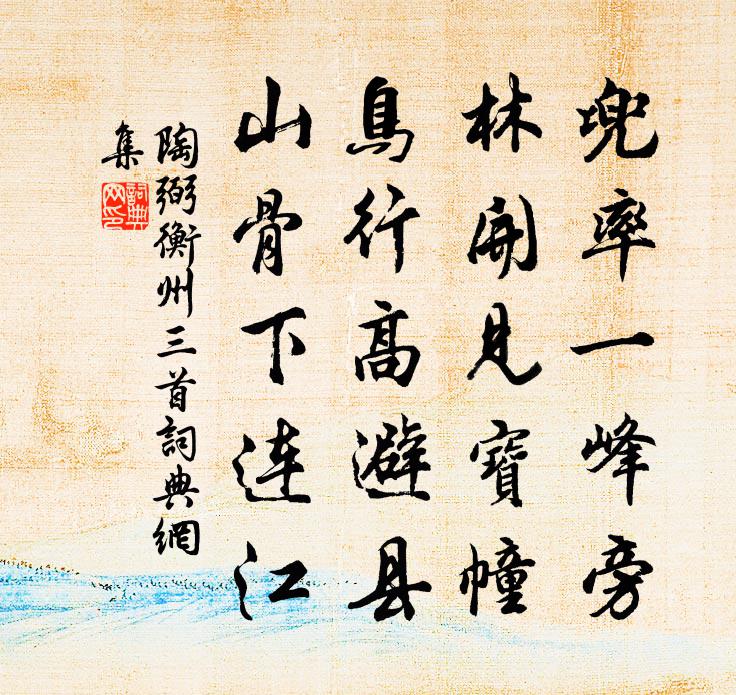 兜率一峰旁
林開見寶幢
鳥行高避县
山骨下连江
陶弼衡州三首詞典網
集
詞典
网印